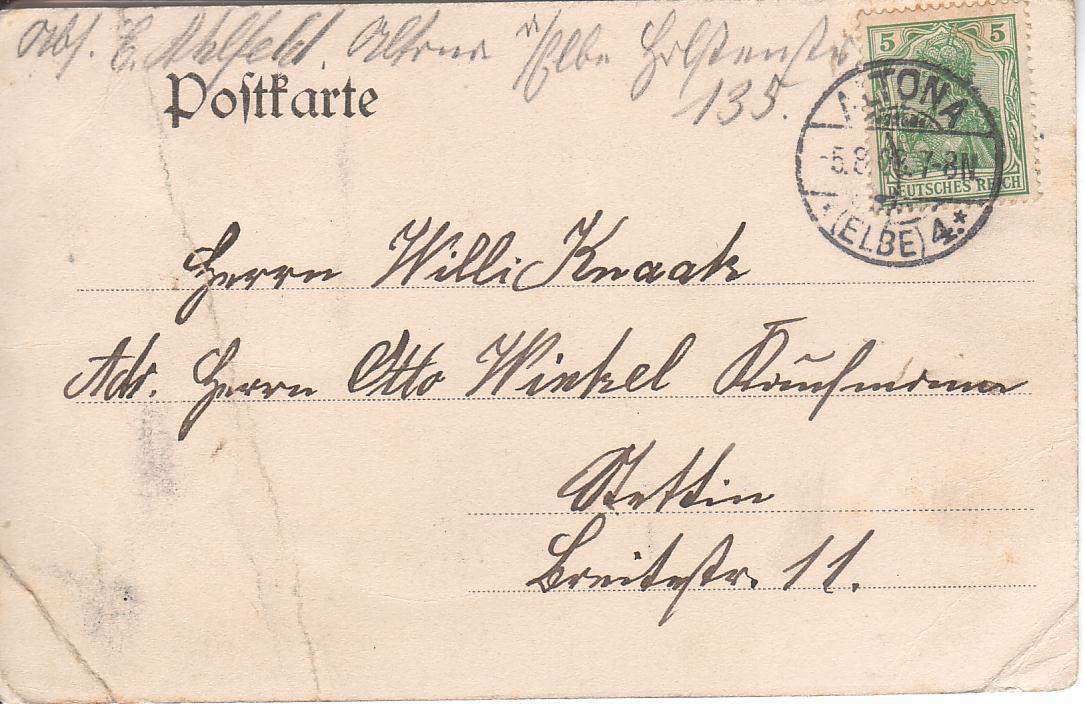 Abs. C. Ahlfeld. Altona a/Elbe Holstenstr
135.
Postkarte
5 5
DEUTSCHES REICH
ALTONA
-5.8. 7-8N
(ELBE) 4.*
Herrn Willi Knaak
Adr. Herrn Otto Winkel Kaufmann
Stettin
Breitestr. 11.